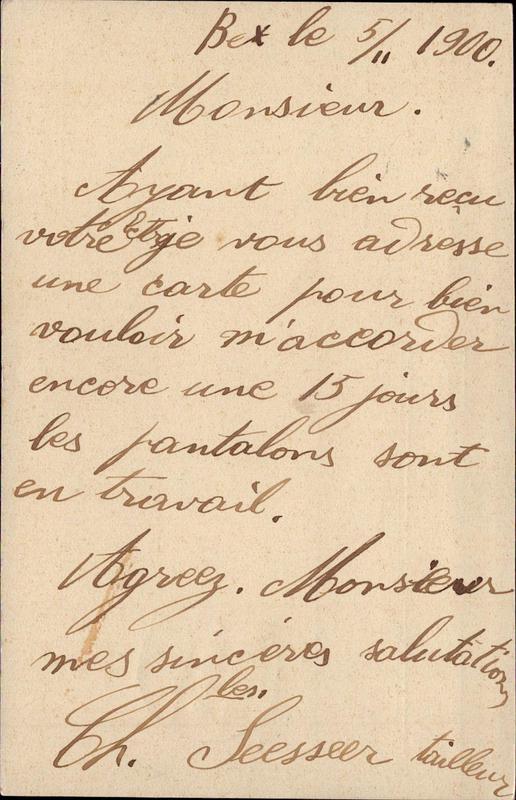 Bex le 5/11 1900.
Monsieur.
Ayant bien reçu
votre je vous adresse
une carte pour bien
vouloir m'accorder
encore une 15 jours
les pantalons sont
en travail.
Agreez. Monsieur
mes sincéres salutations
les.
Ch. tailleur